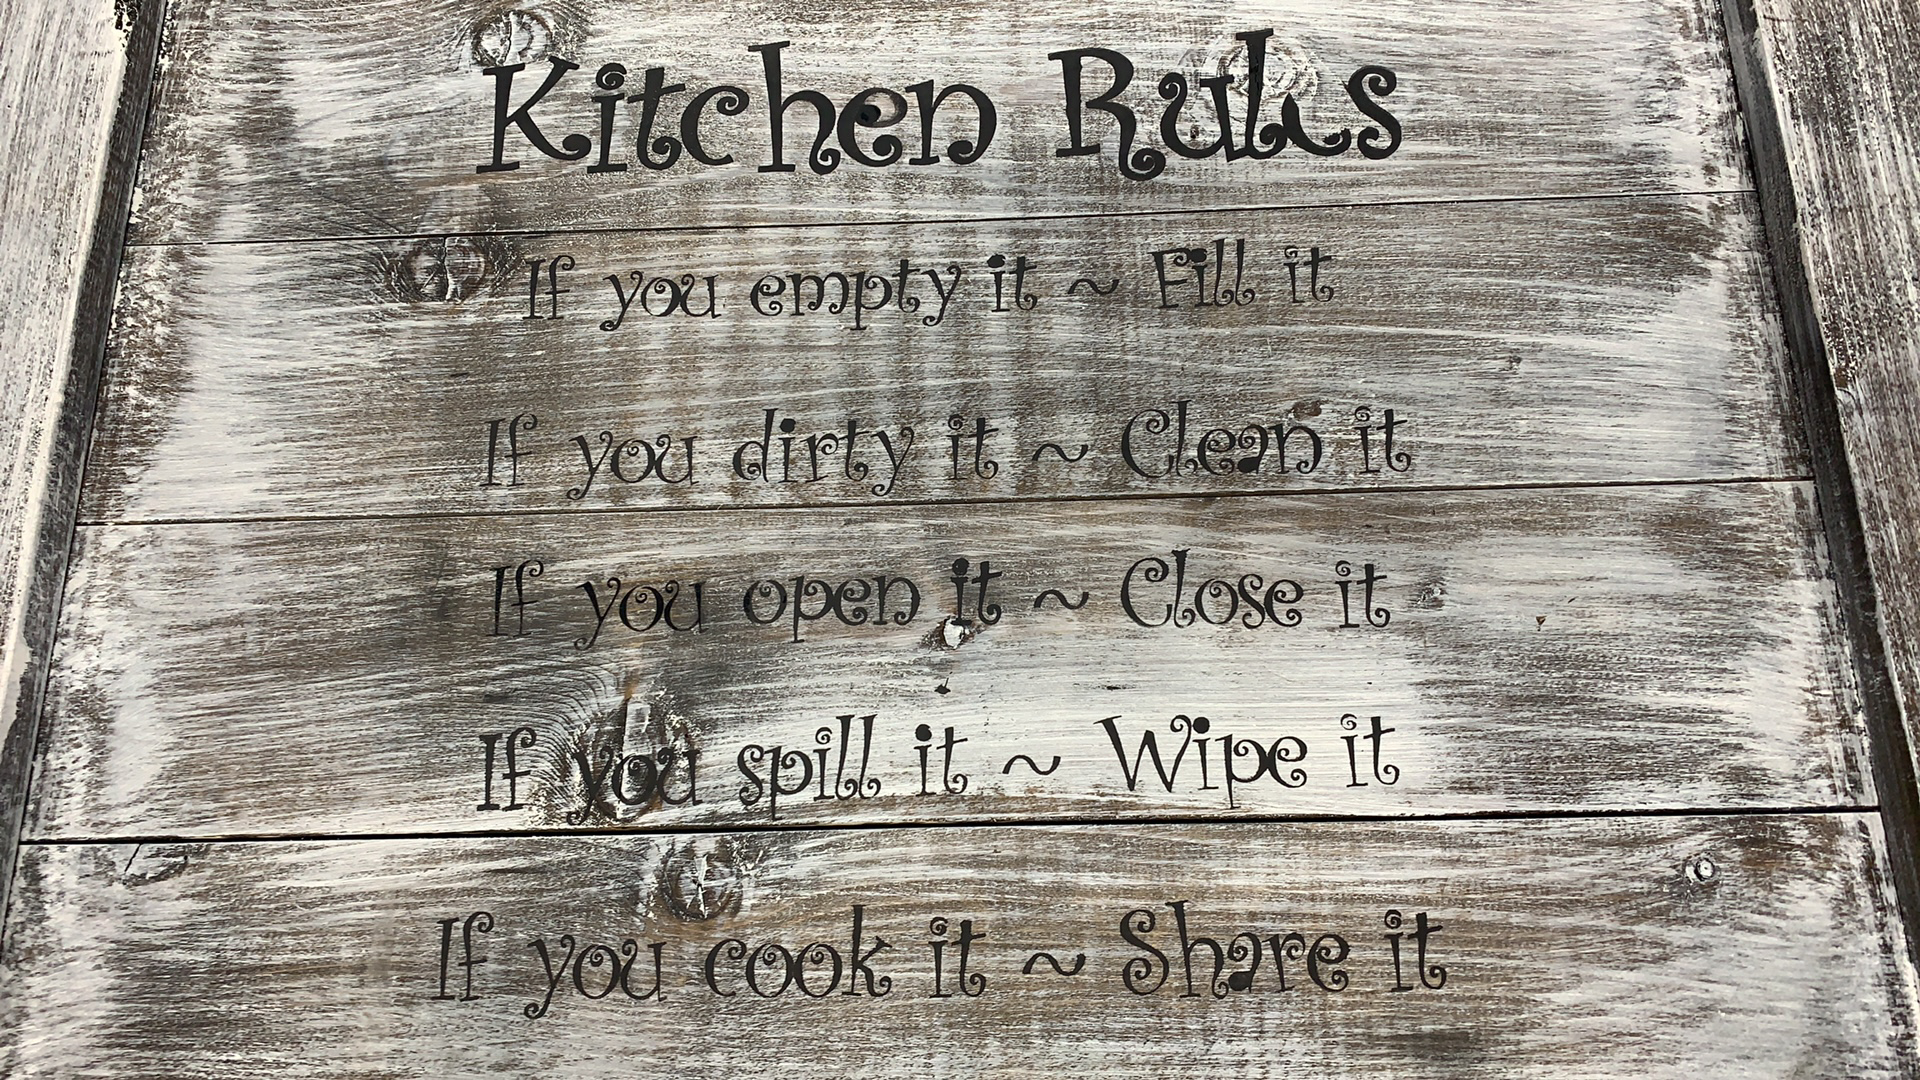 Kitchen Rules
If you empty it ~ Fill it
If you dirty it ~ Clean it
If you open it ~ Close it
If you spill it ~ Wipe it
If you cook it ~ Share it